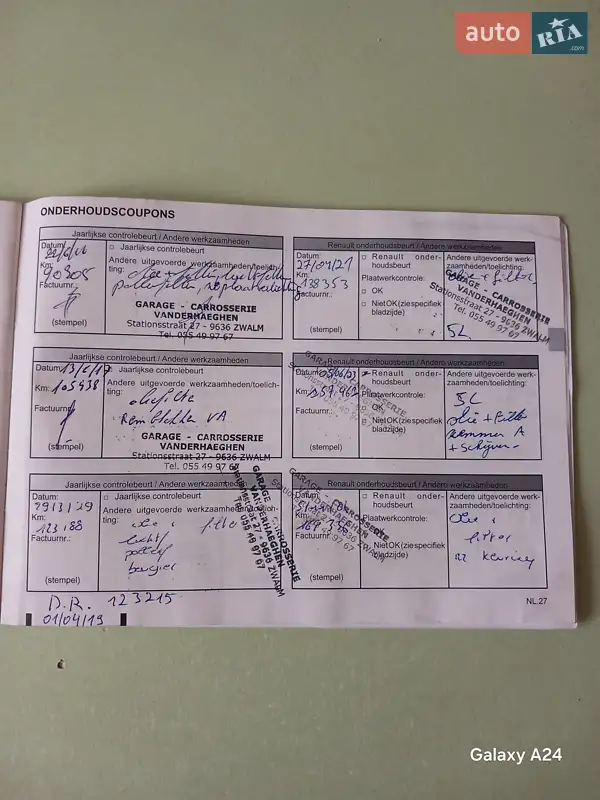 auto RIA.com
ONDERHOUDSCOUPONS
Jaarlijkse controlebeurt / Andere werkzaamheden
Datum:
□ Jaarlijkse controlebeurt
Andere uitgevoerde werkzaamheden/toelich-
ting:
Km:
90305
Factuurnr.:
(stempel)
GARAGE - CARROSSERIE
VANDERHAEGHEN
Stationsstraat 27 - 9636 ZWALM
Tel. 055 49 97 67
Renault onderhoudsbeurt / Andere werkzaamheden
Datum:
27/04/21
Km:
138353
Factuurnr.:
(stempel)
□ Renault onder-
houdsbeurt
Plaatwerkcontrole:
□ OK
□ NietOK(ziespecifiek
bladzijde)
Andere uitgevoerde werk-
zaamheden/toelichting:
olie + filter
GARAGE - CARROSSERIE
VANDERHAEGHEN
Stationsstraat 27 - 9636 ZWALM
Tel. 055 49 97 67
SL
Jaarlijkse controlebeurt / Andere werkzaamheden
Datum:
Km: 105938
Factuurnr.:
(stempel)
□ Jaarlijkse controlebeurt
Andere uitgevoerde werkzaamheden/toelich-
ting:
oliefilter
Remblokken VA
GARAGE - CARROSSERIE
VANDERHAEGHEN
Stationsstraat 27 - 9636 ZWALM
Tel. 055 49 97 67
Renault onderhoudsbeurt / Andere werkzaamheden
Datum:
Km:
Factuurnr.:
(stempel)
Renault onder-
houdsbeurt
Plaatwerkcontrole:
OK
NietOK(ziespecifiek
bladzijde)
Andere uitgevoerde werk-
zaamheden/toelichting:
SL
olie + filter
remmen A
+ Schijven
Jaarlijkse controlebeurt / Andere werkzaamheden
Datum:
29/3/19
Km:
123188
Factuurnr.:
(stempel)
□ Jaarlijkse controlebeurt
Andere uitgevoerde werkzaamheden/toelich-
ting:
olie filter
lucht
pollen
bougies
GARAGE - CARROSSERIE
VANDERHAEGHEN
Stationsstraat 27 - 9636 ZWALM
Tel. 055 49 97 67
Renault onderhoudsbeurt / Andere werkzaamheden
Datum:
Km:
Factuurnr.:
(stempel)
□ Renault onder-
houdsbeurt
Plaatwerkcontrole:
OK
NietOK(ziespecifiek
bladzijde)
Andere uitgevoerde werk-
zaamheden/toelichting:
Olie
filter
keuring
D.R. 123215
01/04/19
NL.27
Galaxy A24